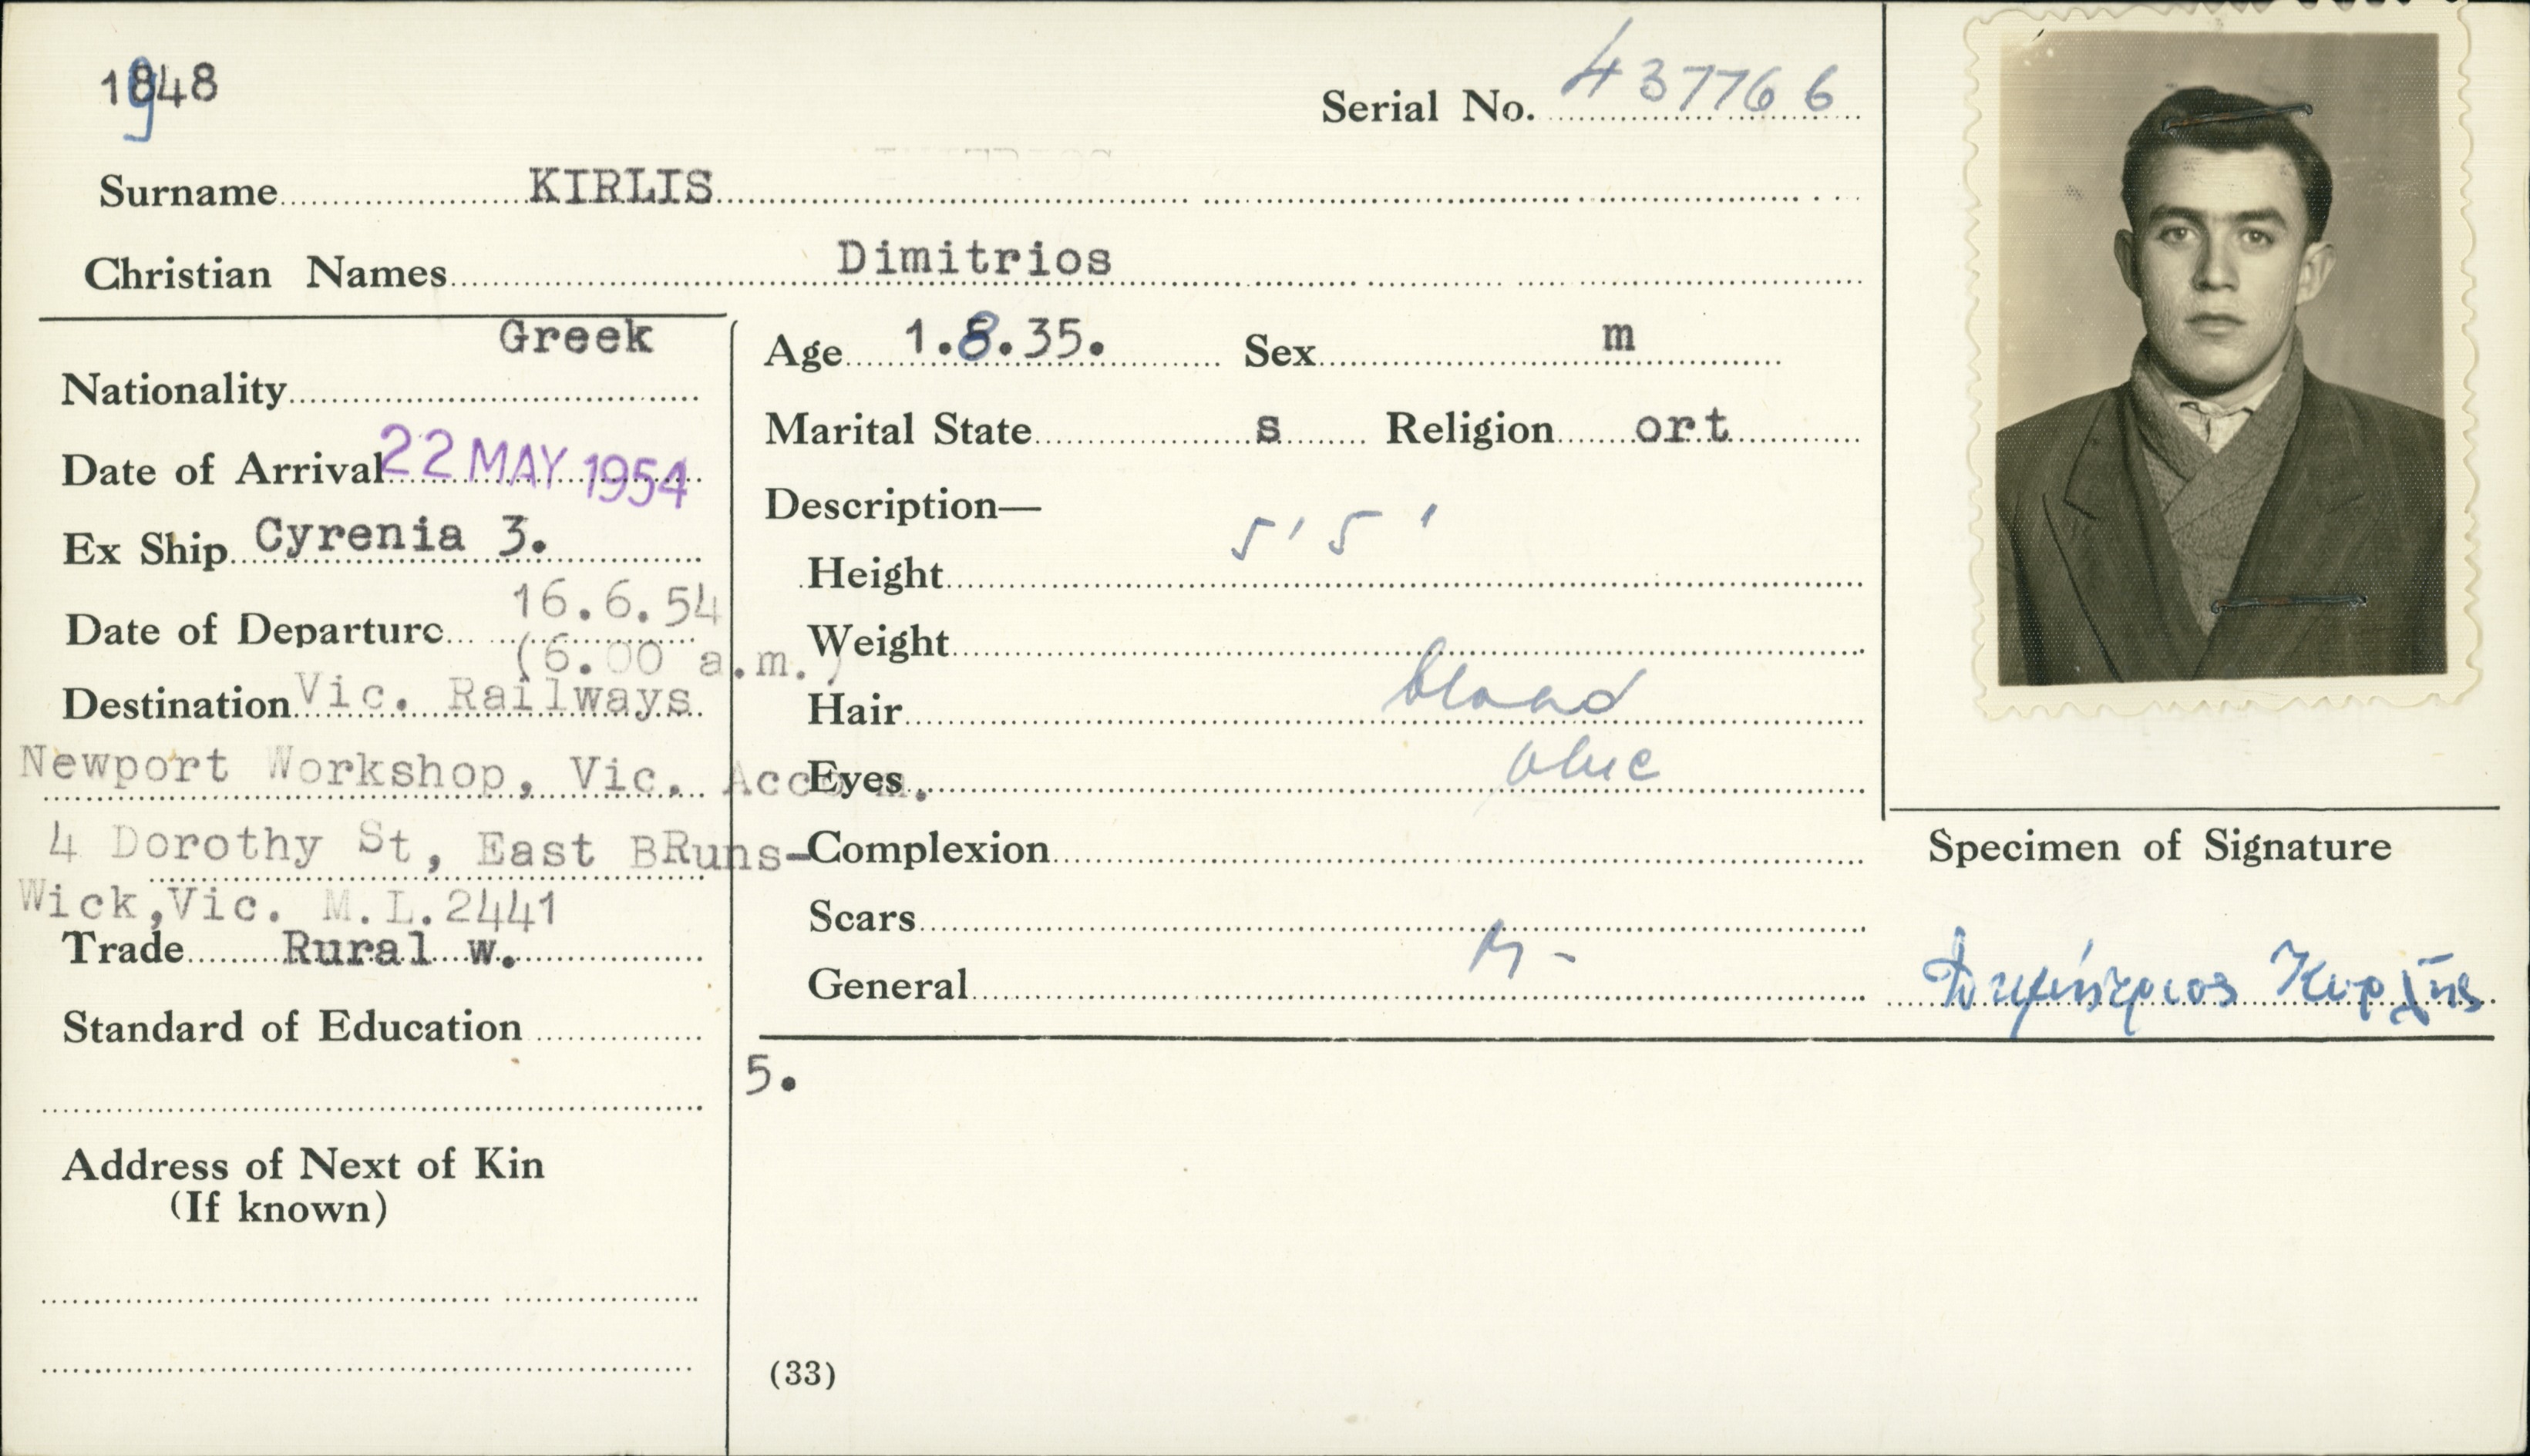 1948
Serial No. 437766
Surname KIRLIS
Christian Names Dimitrios
Nationality Greek
Date of Arrival 22 MAY 1954
Ex Ship Cyrenia 3.
Date of Departure 16.6.54
(6.00 a.m.)
Destination Vic. Railways
Newport Workshop, Vic. Accom.
4 Dorothy St, East BRuns-
Wick,Vic. M.L.2441
Trade Rural w.
Standard of Education
Address of Next of Kin
(If known)
Age 1.8.35. Sex m
Marital State s Religion ort
Description—
Height 5' 5'
Weight
Hair blond
Eyes blue
Complexion
Scars
General
5.
(33)
Specimen of Signature
Δημήτριος Κυρλής